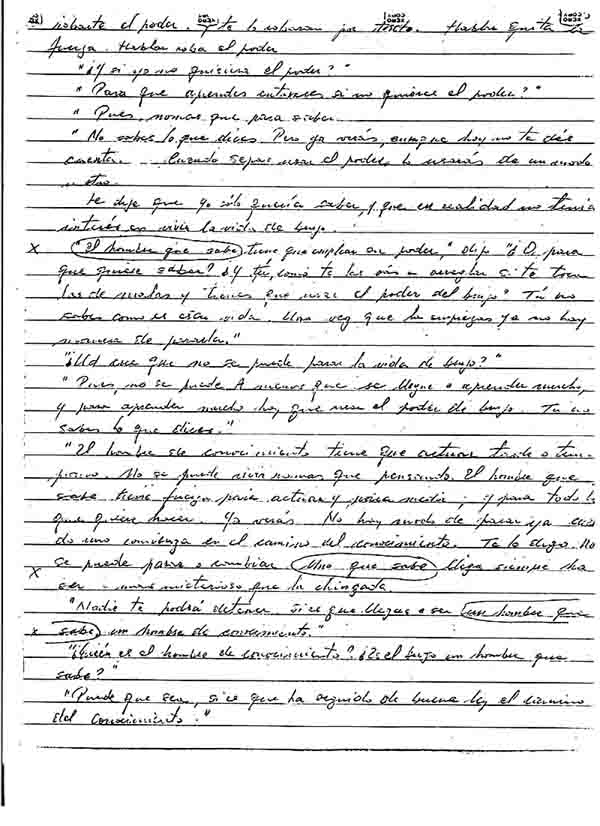 robarte el poder. Y te lo robaran por . Hablar quita la
fuerza. Hablar roba el poder
"¿Y si yo no quisiera el poder?"
"Para que aprendes entonces si no quieres el poder?"
"Pues, nomas que para saber.
"No sabes lo que dices. Pero ya verás, aunque hoy no te dés
cuenta. Cuando sepas usar el poder, lo usarás de un modo
u otro.
Le dije que yo sólo quería saber, y que en realidad no tenia
interés en vivir la vida de brujo.
x "El hombre que sabe tiene que emplear su poder," dijo "¿O para
que quiere saber? ¿Y tú, como te las vas a arreglar si te
las de malas y tienes que usar el poder del brujo? Tú no
sabes como es esa vida. Una vez que la empiezas ya no hay
manera de pararla."
"¿Ud cree que no se puede parar la vida de brujo?"
"Pues, no se puede A menos que se llegue a aprender mucho,
y para aprender mucho hay que usar el poder de brujo. Tu no
sabes lo que dices."
"El hombre de conocimiento tiene que actuar tarde o tem-
prano. No se puede vivir nomas que pensando. El hombre que
sabe tiene fuerza para actuar y para medir y para todo lo
que quiere hacer. Ya verás. No hay modo de parar ya cuan
do uno comienza en el camino del conocimiento. Te lo digo. No
se puede parar o cambiar Uno que sabe llega siempre ha
x ser mas misterioso que la chingada.
"Nadie te podrá detener si es que llegas a ser un hombre que
x sabe, un hombre de conocimiento."
"¿Quién es el hombre de conocimiento? ¿Es el brujo un hombre que
sabe?"
"Puede que sea, si es que ha seguido de buena ley el camino
del conocimiento."